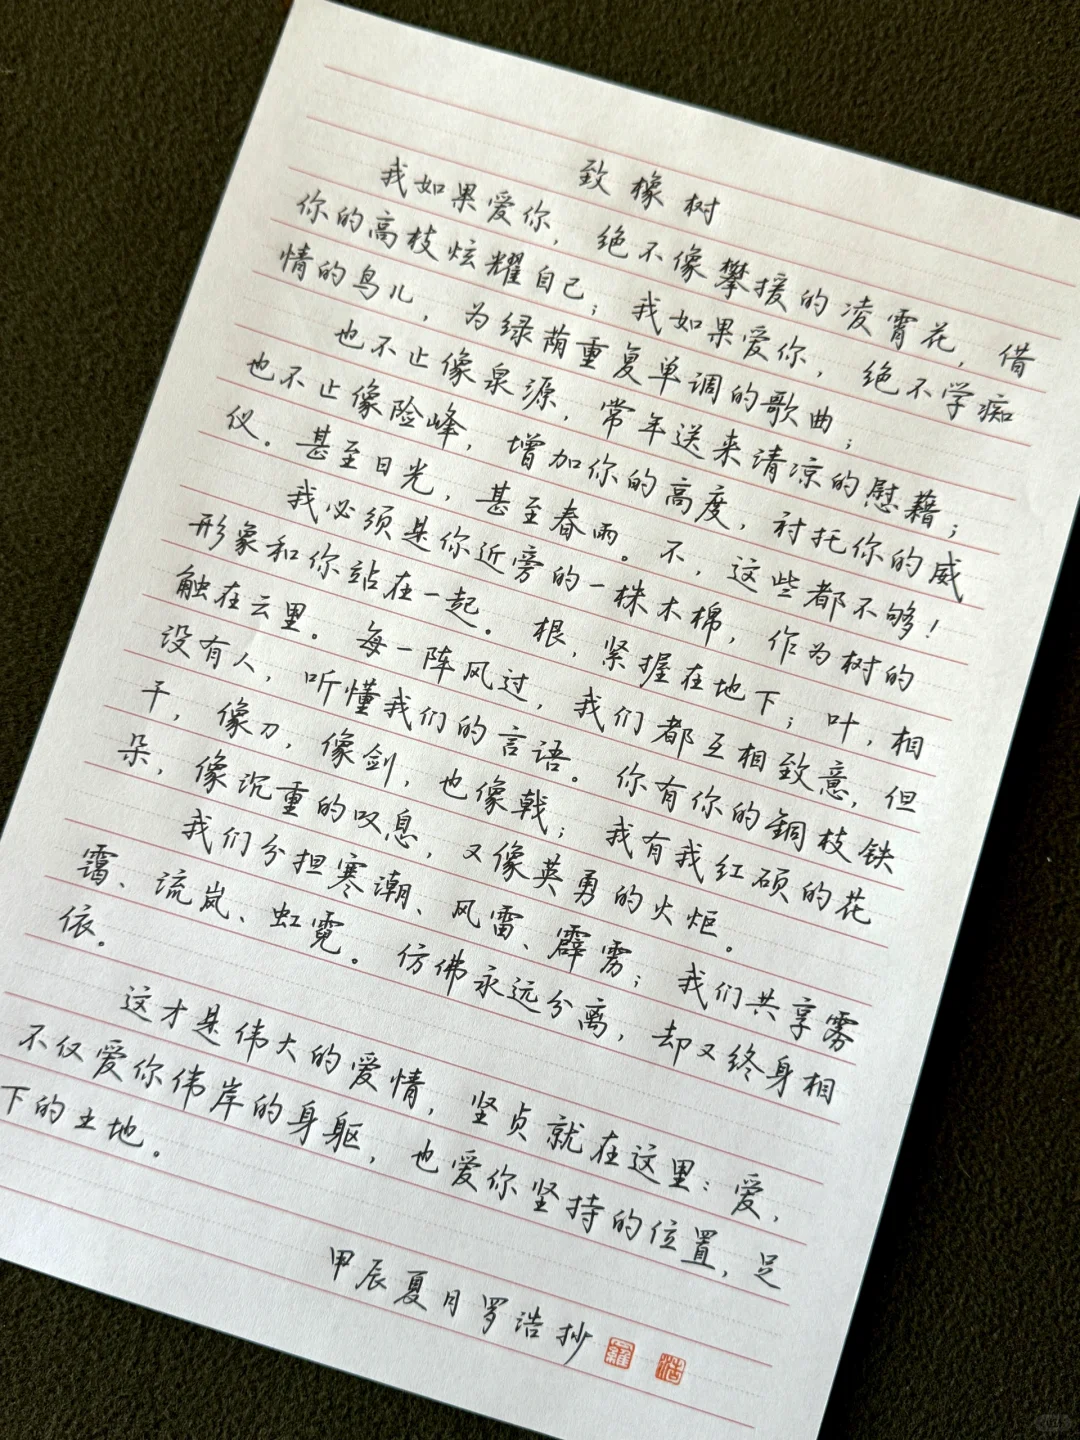 致橡树
我如果爱你，绝不像攀援的凌霄花，借
你的高枝炫耀自己；我如果爱你，绝不学痴
情的鸟儿，为绿荫重复单调的歌曲；
也不止像泉源，常年送来清凉的慰藉；
也不止像险峰，增加你的高度，衬托你的威
仪。甚至日光，甚至春雨。不，这些都不够！
我必须是你近旁的一株木棉，作为树的
形象和你站在一起。根，紧握在地下；叶，相
触在云里。每一阵风过，我们都互相致意，但
没有人，听懂我们的言语。你有你的铜枝铁
干，像刀，像剑，也像戟；我有我红硕的花
朵，像沉重的叹息，又像英勇的火炬。
我们分担寒潮、风雷、霹雳；我们共享雾
霭、流岚、虹霓。仿佛永远分离，却又终身相
依。
这才是伟大的爱情，坚贞就在这里：爱，
不仅爱你伟岸的身躯，也爱你坚持的位置，足
下的土地。
甲辰夏月罗浩抄 羅 浩